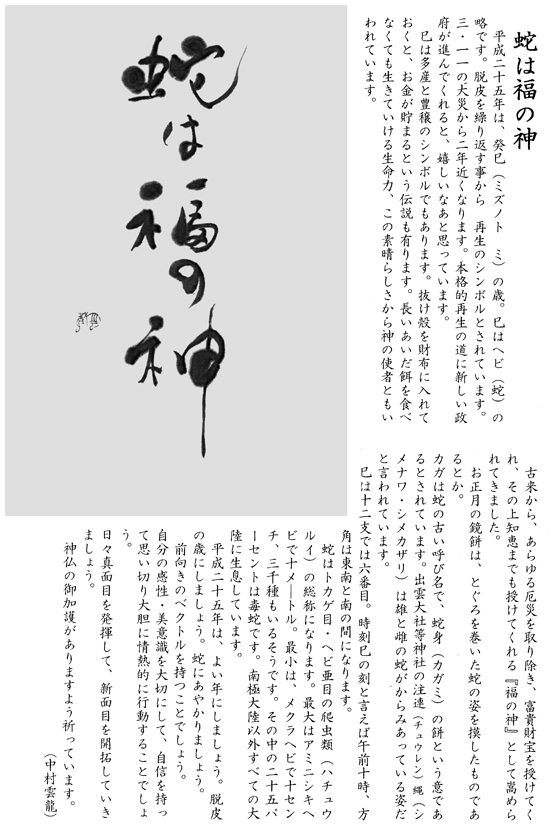 蛇は福の神
平成二十五年は、癸巳（ミズノト　ミ）の歳。巳はヘビ（蛇）の
略です。脱皮を繰り返す事から　再生のシンボルとされています。
三・一一の大災から二年近くなります。本格的再生の道に新しい政
府が進んでくれると、嬉しいなあと思っています。
巳は多産と豊穣のシンボルでもあります。抜け殻を財布に入れて
おくと、お金が貯まるという伝説も有ります。長いあいだ餌を食べ
なくても生きていける生命力、この素晴らしさから神の使者ともい
われています。
蛇は福の神
古来から、あらゆる厄災を取り除き、富貴財宝を授けてく
れ、その上知恵までも授けてくれる『福の神』として嵩めら
れてきました。
お正月の鏡餅は、とぐろを巻いた蛇の姿を摸したものであ
るとか。
カガは蛇の古い呼び名で、蛇身（カガミ）の餅という意であ
るとされています。出雲大社等神社の注連（チュウレン）縄（シ
メナワ・シメカザリ）は雄と雌の蛇がからみあっている姿だ
と言われています。
巳は十二支では六番目。時刻巳の刻と言えば午前十時、方
角は東南と南の間になります。
蛇はトカゲ目・ヘビ亜目の爬虫類（ハチュウ
ルイ）の総称になります。最大はアミニシキヘ
ビで十メートル。最小は、メクラヘビで十セン
チ、三千種もいるそうです。その中の二十五パ
ーセントは毒蛇です。南極大陸以外すべての大
陸に生息しています。
平成二十五年は、よい年にしましょう。脱皮
の歳にしましょう。蛇にあやかりましょう。
前向きのベクトルを持つことでしょう。
自分の感性・美意識を大切にして、自信を持っ
て思い切り大胆に情熱的に行動することでしょ
う。
日々真面目を発揮して、新面目を開拓していき
ましょう。
神仏の御加護がありますよう祈っています。
（中村雲龍）